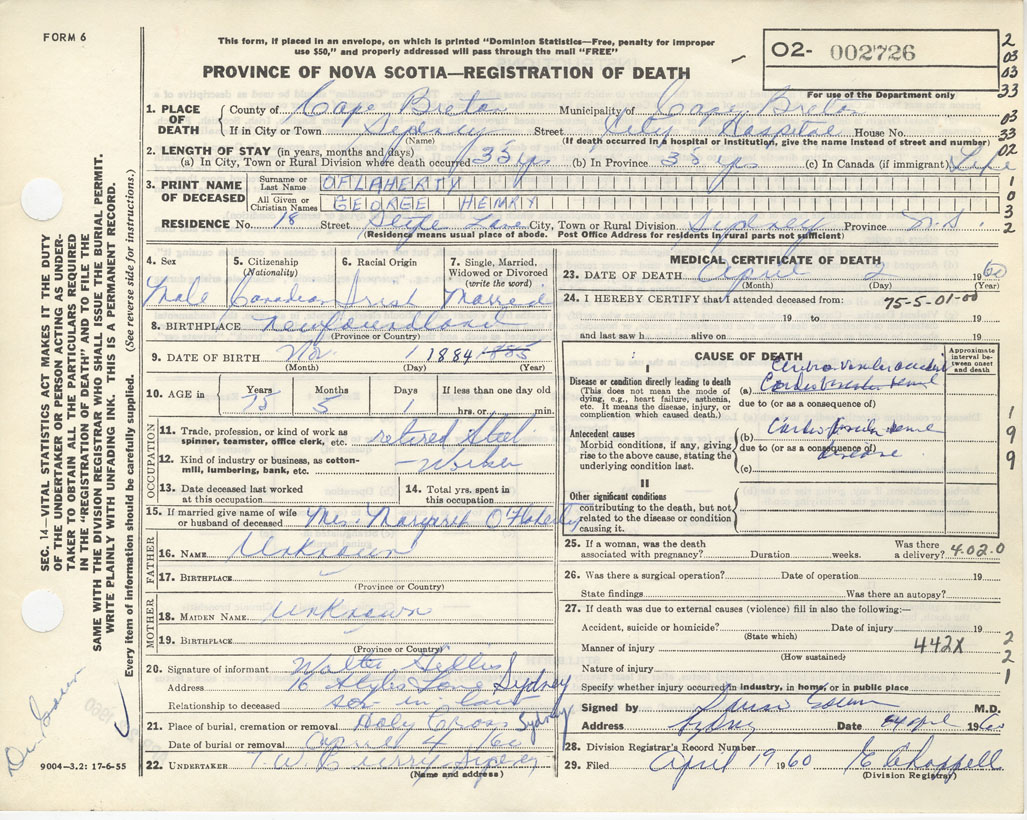 FORM 6
This form, if placed in an envelope, on which is printed "Dominion Statistics—Free, penalty for improper
use $50," and properly addressed will pass through the mail "FREE"
O2- 002726
For use of the Department only
PROVINCE OF NOVA SCOTIA—REGISTRATION OF DEATH
2
03
03
33
03
33
02
1
0
3
2
1. PLACE OF DEATH { County of Cape Breton Municipality of Cape Breton
If in City or Town Sydney Street City Hospital House No.
(Name) (If death occurred in a hospital or institution, give the name instead of street and number)
2. LENGTH OF STAY (in years, months and days)
(a) In City, Town or Rural Division where death occurred 35 yrs (b) In Province 35 yrs (c) In Canada (if immigrant) Life
3. PRINT NAME OF DECEASED
Surname or Last Name OFLAHERTY
All Given or Christian Names GEORGE HENRY
RESIDENCE No. 18 Street Lane City, Town or Rural Division Sydney Province N.S.
(Residence means usual place of abode. Post Office Address for residents in rural parts not sufficient)
4. Sex Male
5. Citizenship (Nationality) Canadian
6. Racial Origin Irish
7. Single, Married, Widowed or Divorced (write the word) Married
8. BIRTHPLACE Newfoundland
(Province or Country)
9. DATE OF BIRTH Nov 1 1884 1885
(Month) (Day) (Year)
10. AGE in Years 75 Months 5 Days 1 If less than one day old hrs. or min.
OCCUPATION
11. Trade, profession, or kind of work as spinner, teamster, office clerk, etc. retired Steel
12. Kind of industry or business, as cotton-mill, lumbering, bank, etc. -Worker
13. Date deceased last worked at this occupation
14. Total yrs. spent in this occupation
15. If married give name of wife or husband of deceased Mrs. Margaret O'Flaherty
FATHER
16. NAME Unknown
17. BIRTHPLACE
(Province or Country)
MOTHER
18. MAIDEN NAME Unknown
19. BIRTHPLACE
(Province or Country)
20. Signature of informant Walter Gillis
Address 16 Lane Sydney
Relationship to deceased son-in-law
21. Place of burial, cremation or removal Holy Cross Sydney
Date of burial or removal April 4 /60
22. UNDERTAKER T W Curry Sydney
(Name and address)
MEDICAL CERTIFICATE OF DEATH
23. DATE OF DEATH April 2 1960
(Month) (Day) (Year)
24. I HEREBY CERTIFY that I attended deceased from: 75-5-01-00
19 to 19
and last saw h alive on 19
CAUSE OF DEATH
Approximate interval between onset and death
I
Disease or condition directly leading to death
(This does not mean the mode of dying, e.g., heart failure, asthenia, etc. It means the disease, injury, or complication which caused death.)
(a)
due to (or as a consequence of)
Antecedent causes
Morbid conditions, if any, giving rise to the above cause, stating the underlying condition last.
(b)
due to (or as a consequence of)
disease
(c)
II
Other significant conditions
contributing to the death, but not related to the disease or condition causing it.
1
9
9
25. If a woman, was the death associated with pregnancy? Duration weeks. Was there a delivery? 4.02.0
26. Was there a surgical operation? Date of operation 19
State findings Was there an autopsy?
27. If death was due to external causes (violence) fill in also the following:—
Accident, suicide or homicide? Date of injury 19
(State which)
Manner of injury 442X
(How sustained)
Nature of injury
2
2
1
Specify whether injury occurred in industry, in home, or in public place
Signed by M.D.
Address Sydney Date 4 April 1960
28. Division Registrar's Record Number
29. Filed April 19 1960 E Chappell
(Division Registrar)
SEC. 14—VITAL STATISTICS ACT MAKES IT THE DUTY
OF THE UNDERTAKER OR PERSON ACTING AS UNDER-
TAKER TO OBTAIN ALL THE PARTICULARS REQUIRED
IN THE "REGISTRATION OF DEATH" AND FILE THE
SAME WITH THE DIVISION REGISTRAR WHO SHALL ISSUE THE BURIAL PERMIT.
WRITE PLAINLY WITH UNFADING INK. THIS IS A PERMANENT RECORD.
Every item of information should be carefully supplied. (See reverse side for instructions.)
9004-3.2: 17-6-55